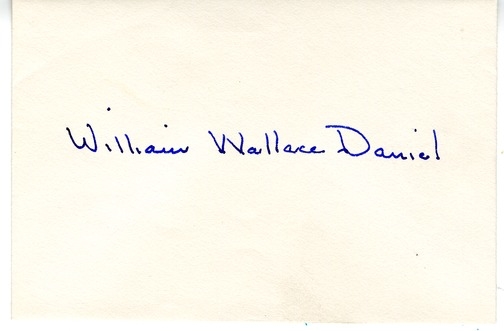 William Wallace Daniel